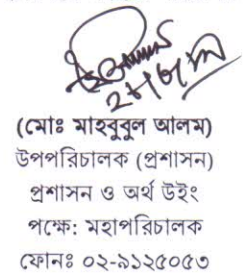 (মোঃ মাহবুবুল আলম)
উপপরিচালক (প্রশাসন)
প্রশাসন ও অর্থ উইং
পক্ষে: মহাপরিচালক
ফোনঃ ০২-৯১২৫০৫৩